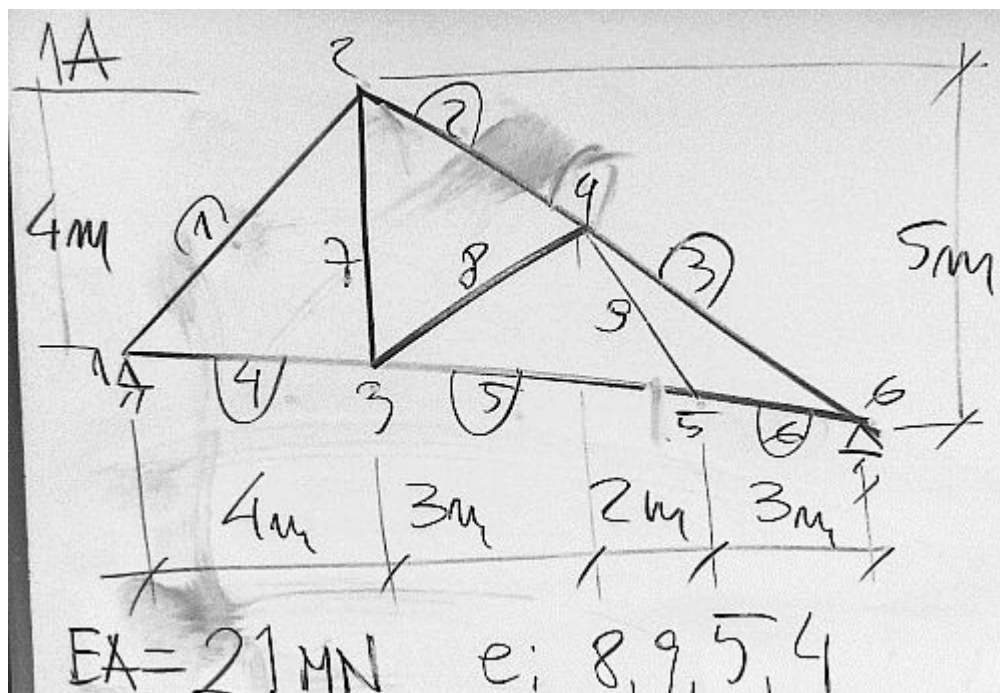 1A
2
2
4
4m
1
7
8
3
5m
9
1
4
3
5
5
6
6
4m
3m
2m
3m
EA = 21 MN e: 8, 9, 5, 4